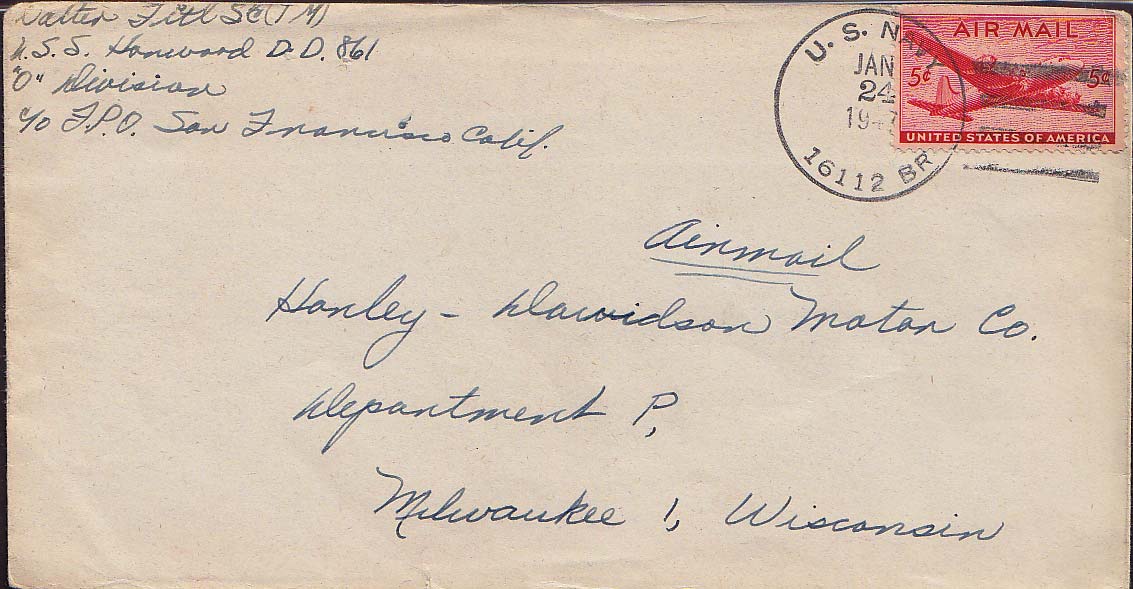 Walter Titl S2 (TM)
U.S.S. Harwood D.D. 861
"O" Division
c/o F.P.O. San Francisco Calif.
U. S. NAVY
JAN
24
1947
16112 BR
AIR MAIL
5¢ 5¢
UNITED STATES OF AMERICA
Airmail
Harley - Davidson Motor Co.
Department P,
Milwaukee 1, Wisconsin